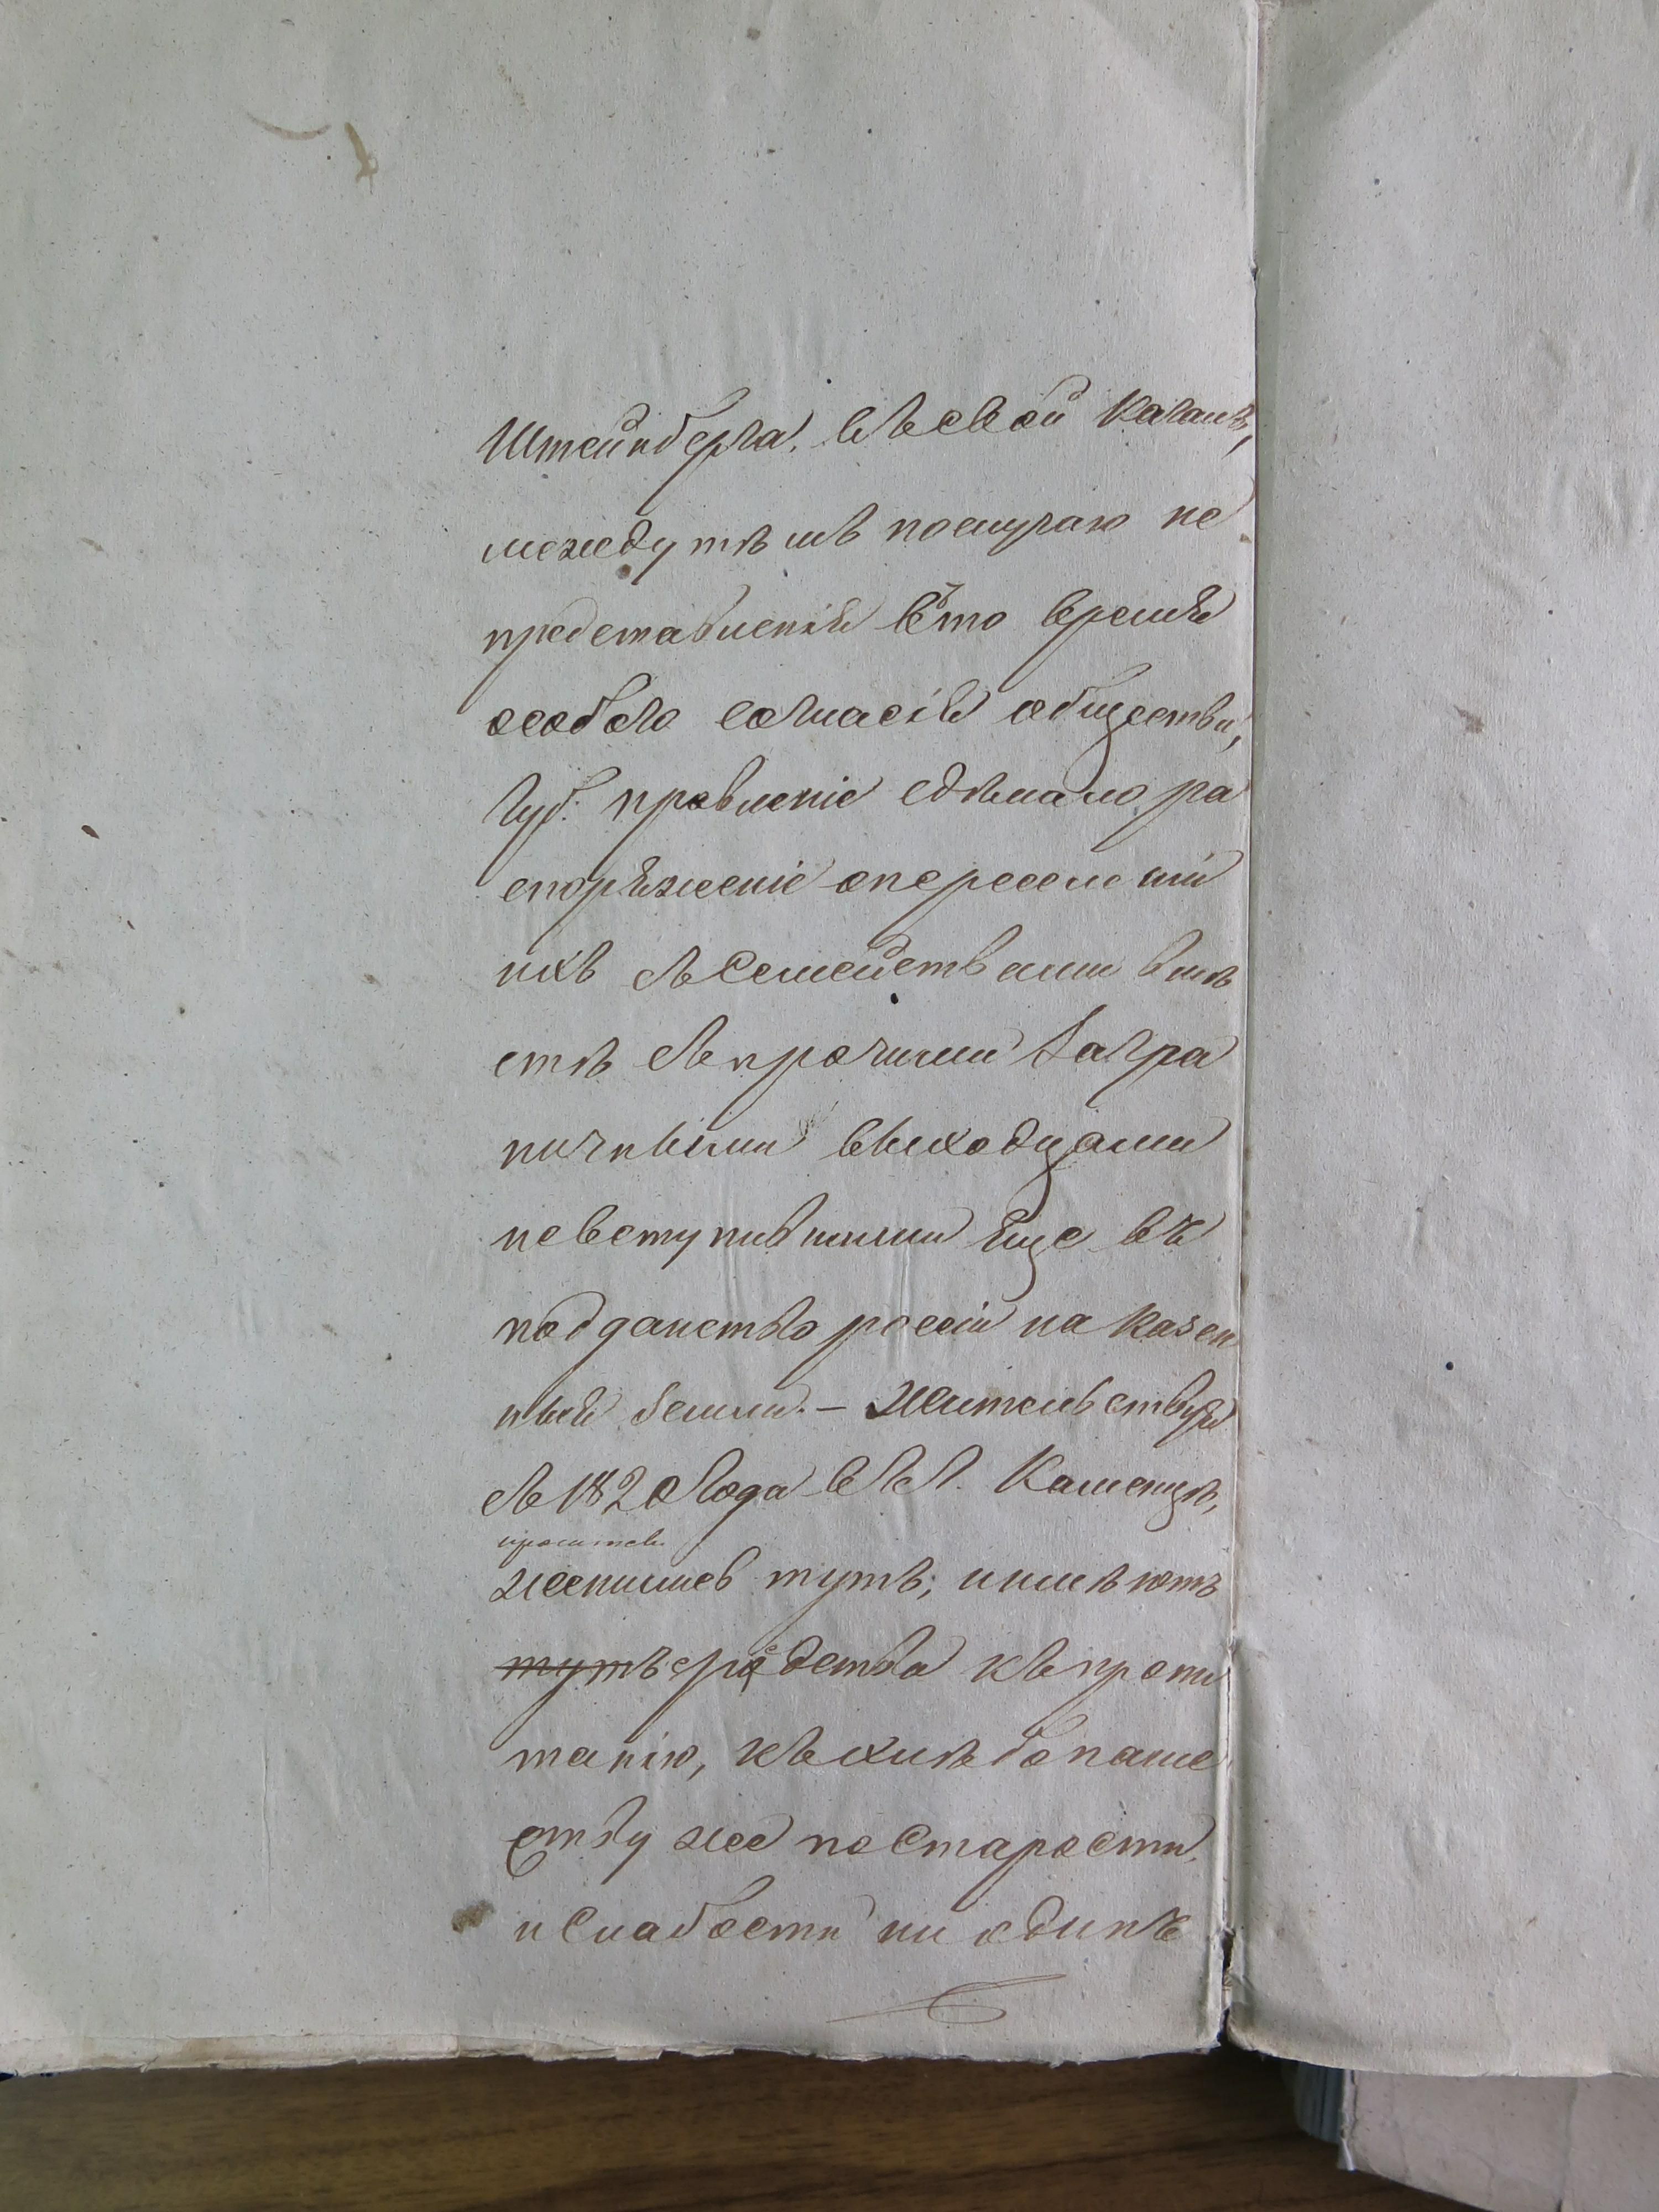 Штейнберга, въ свой кагалъ,
между тѣмъ по случаю не
представленія въ то время
особого согласія общества,
Губ: правленіе сдѣлало ра
споряженіе о переселеніи
ихъ съ Семействами вмѣ
стѣ съ прочими загра
ничными выходцами
невступившими еще въ
подданство россіи на казен
ныя земли. – Жительствуя
съ 1820 года въ г. Каменцѣ,
просители
женились тутъ, имѣютъ
тутъ средства къ пропи
танію, къ хлѣбопаше
ству же по Старости
и Слабости ни одинъ